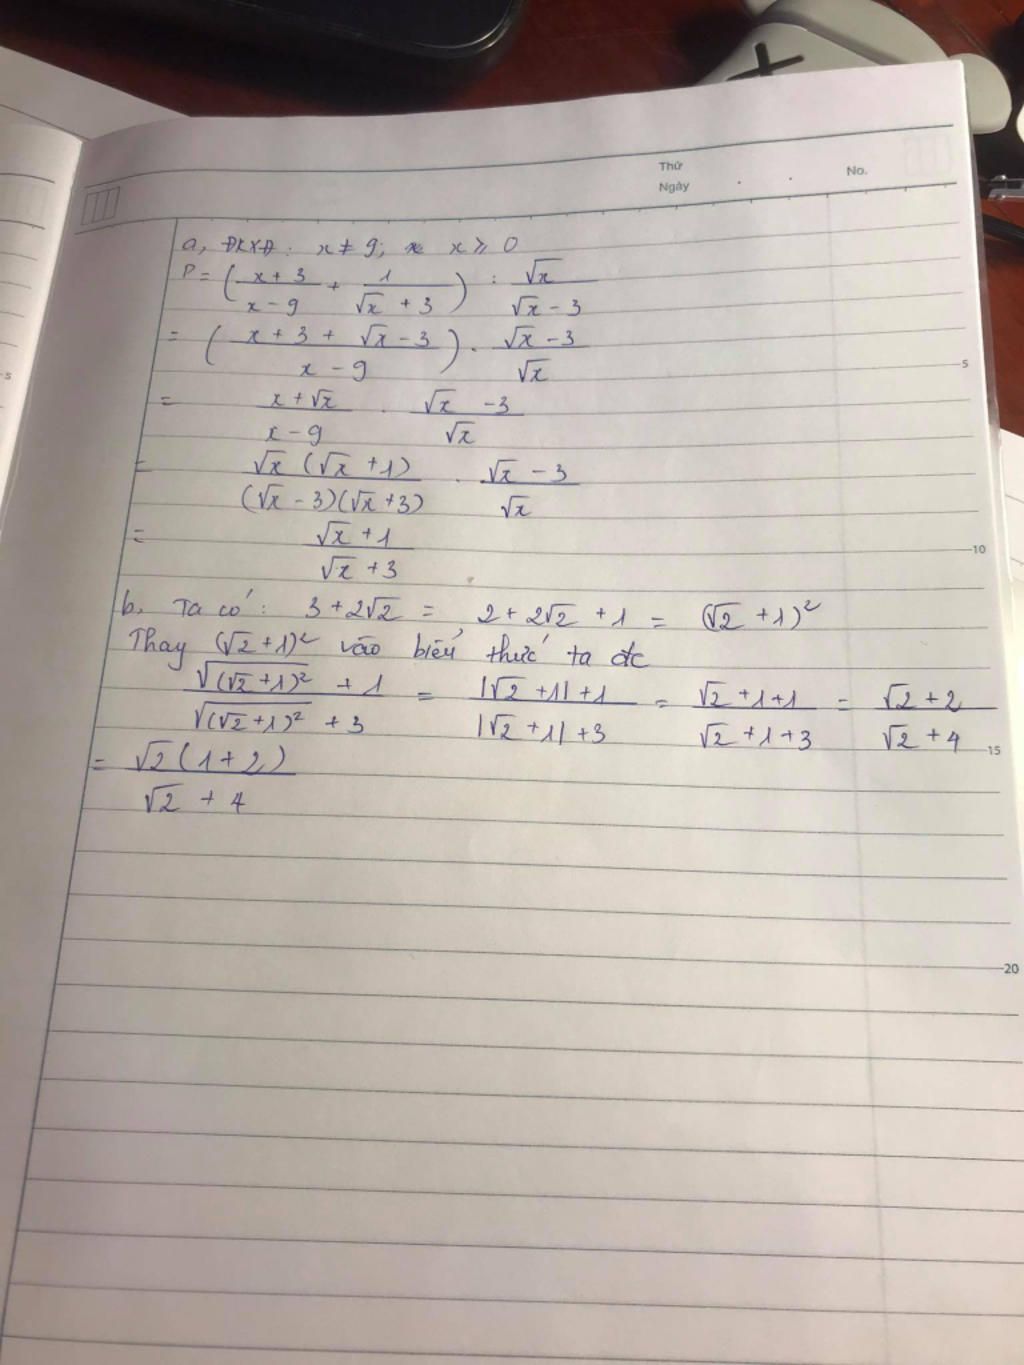 Thứ
No.
Ngày
a, ĐKXĐ: x ≠ 9; x ≥ 0
P = (x + 3 / x - 9 + 1 / √x + 3) : √x / √x - 3
= (x + 3 + √x - 3 / x - 9) . √x - 3 / √x
= x + √x / x - 9 . √x - 3 / √x
= √x (√x + 1) / (√x - 3)(√x + 3) . √x - 3 / √x
= √x + 1 / √x + 3
b, Ta có: 3 + 2√2 = 2 + 2√2 + 1 = (√2 + 1)²
Thay (√2 + 1)² vào biểu thức ta đc
√(√2 + 1)² + 1 / √(√2 + 1)² + 3 = |√2 + 1| + 1 / |√2 + 1| + 3 = √2 + 1 + 1 / √2 + 1 + 3 = √2 + 2 / √2 + 4
= √2 (1 + 2) / √2 + 4
5
10
15
20
5